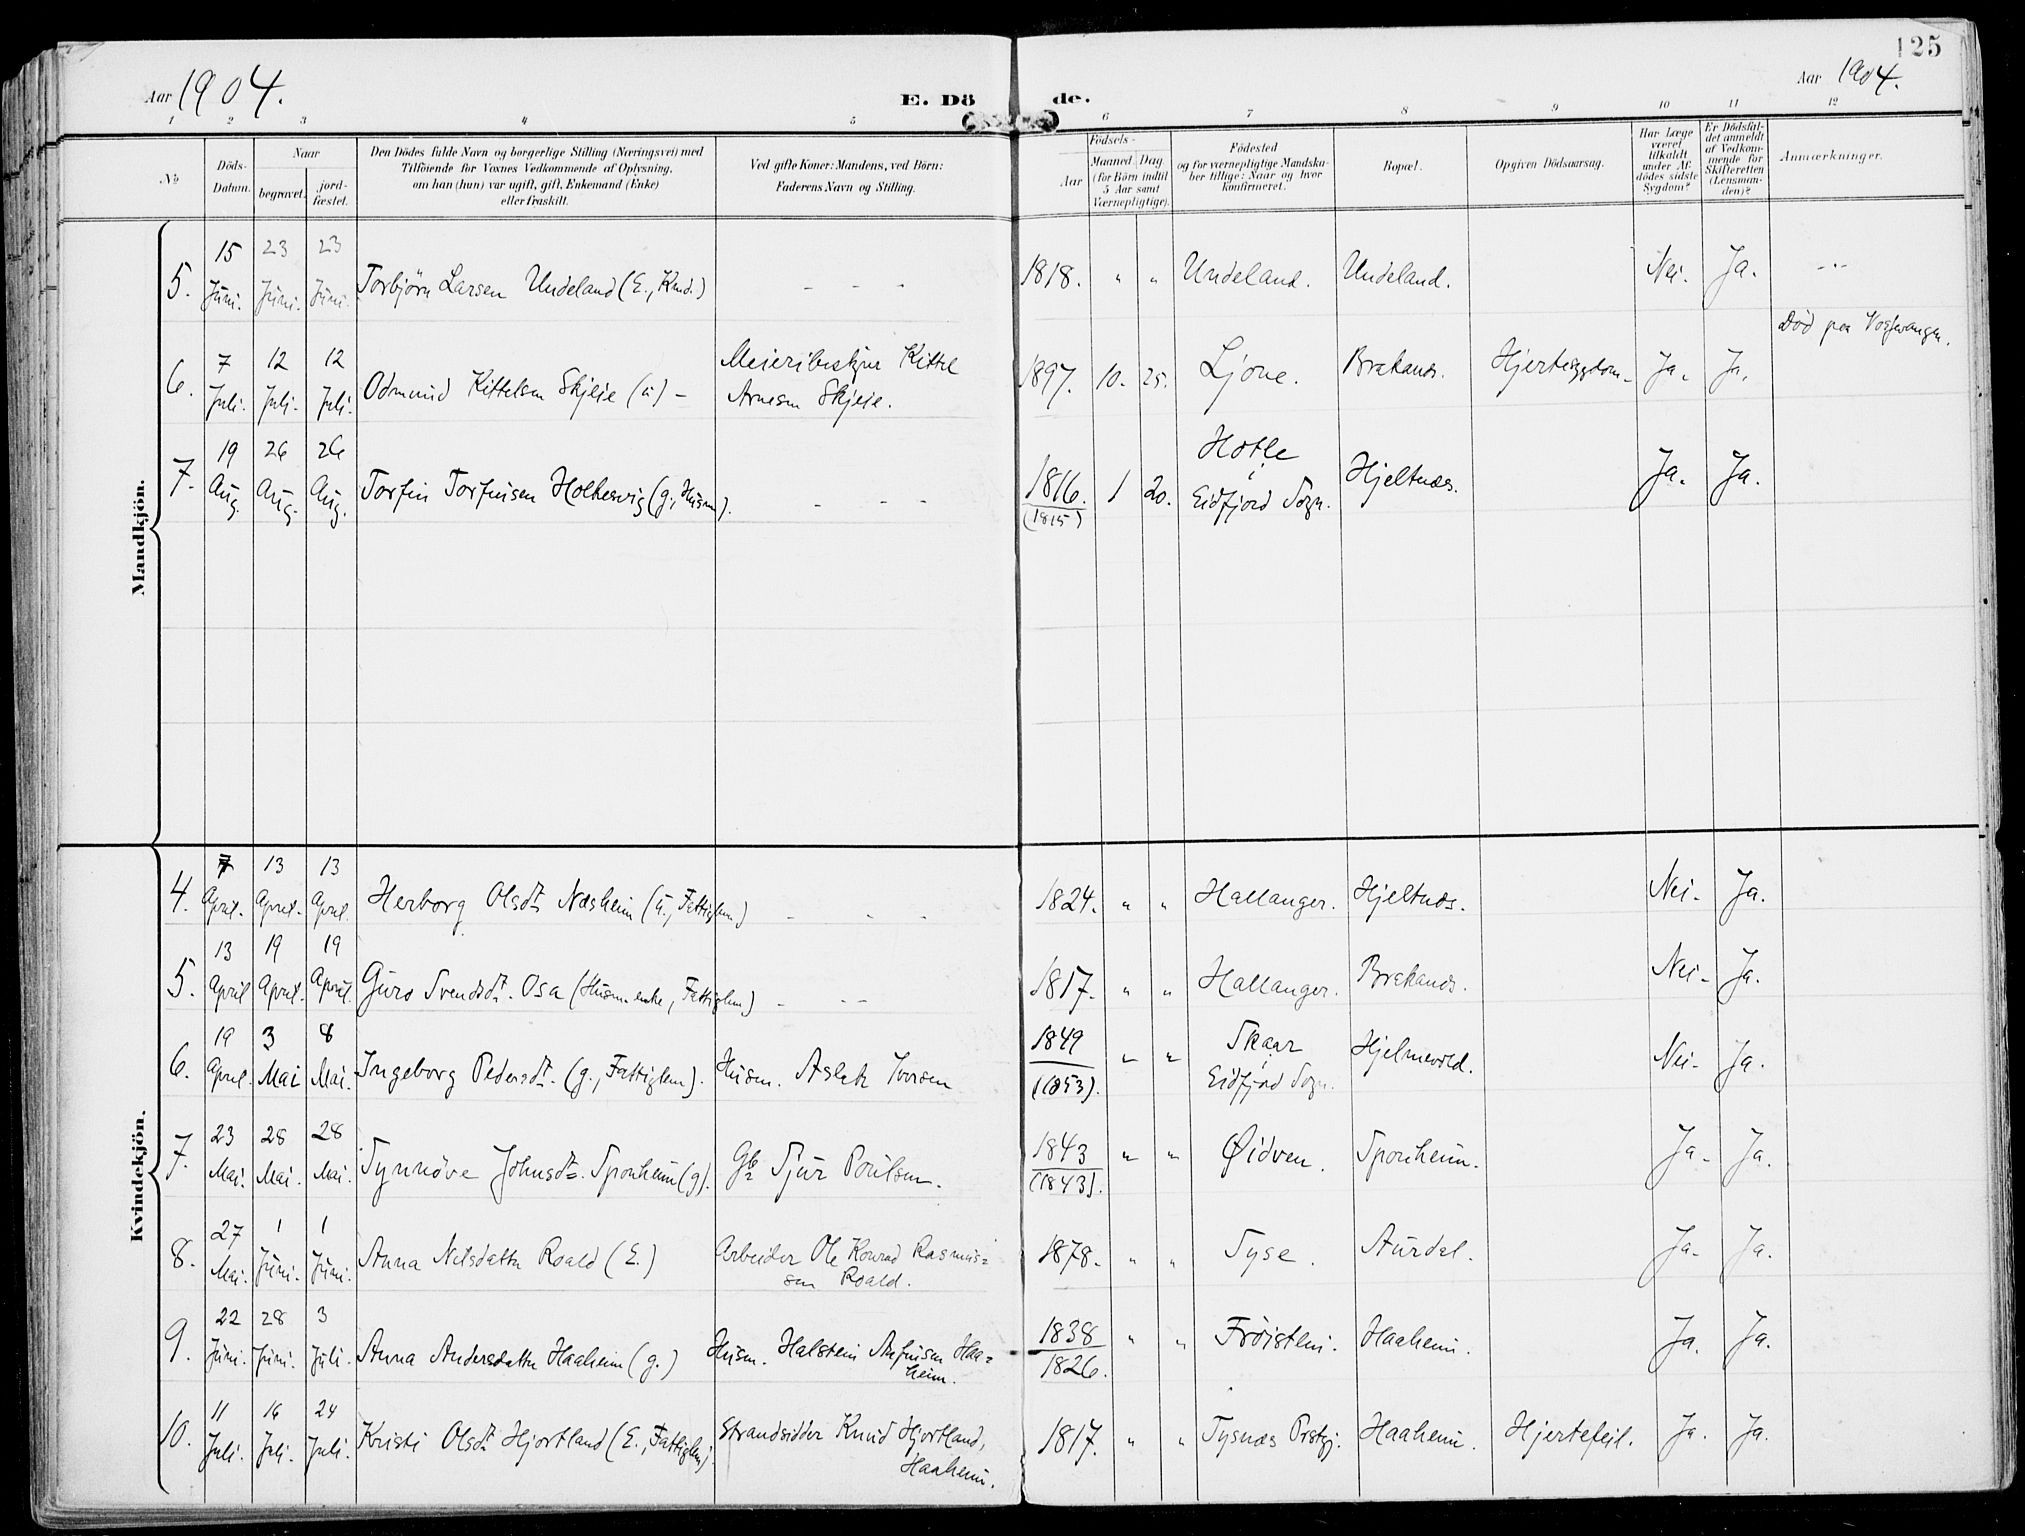 125
Aar 1904.
E. Dö de.
Aar 1904.
1 2 3 4 5 6 7 8 9 10 11 12
No
Döds-Datum.
Naar
begravet.
jord-fæstet.
Den Dödes fulde Navn og borgerlige Stilling (Næringsvei) med
Tilföiende for Voxnes Vedkommende af Oplysning,
om han (hun) var ugift, gift, Enkemand (Enke)
eller fraskilt.
Ved gifte Koner: Mandens, ved Börn:
Faderens Navn og Stilling.
Födsels-
Aar
Maaned Dag
(for Börn indtil
5 Aar samt
Værnepligtige).
Födested
og for værnepligtige Mandska-
ber tillige: Naar og hvor
konfirmeret.
Bopæl.
Opgiven Dödsaarsag.
Har Læge
været
tilkaldt
under Af-
dödes sidste
Sygdom?
Er Dödsfal-
det anmeldt
af Vedkom-
mende for
Skifteretten
(Lensman-
den)?
Anmærkninger.
Mandkjön.
5. 15 Juni. 23 Juni. 23 Juni. Torbjörn Larsen Undeland (E., Kmd.) - - - 1818. " " Undeland. Undeland. Nei. Ja. - -
6. 7 Juli. 12 Juli. 12 Juli. Odmund Kittelsen Skjeie (u) - Meieribestyrer Kittel
Arnesen Skjeie. 1897. 10. 25. Ljone. Brakands. Hjertesygdom- Ja. Ja. Död paa Vossevangen.
7. 19 Aug. 26 Aug. 26 Aug. Torfin Torfinsen Holkesvig (g., Husm). - - - 1816.
(1815) 1 20. Hotle
i
Eidfjord Sogn. Hjeltnæs. Ja. Ja.
Kvindekjön.
4. 7 April. 13 April. 13 April. Herborg Olsdt. Næsheim (u., Fattiglem) - - - 1824. " " Hallanger. Hjeltnæs. Nei- Ja.
5. 13 April 19 April. 19 April. Guro Svendsdt. Osa (Husm.enke, Fattiglem) - - - 1817. " " Hallanger. Brakands. Nei- Ja.
6. 19 April. 3 Mai 8 Mai. Ingeborg Pedersdt. (g., Fattiglem). Husm. Aslak Iversen 1849
(1853). " " Skaar
i
Eidfjord Sogn. Hjelmevold. Nei- Ja.
7. 23 Mai. 28 Mai. 28 Mai. Synnöve Johnsdt. Sponheim (g). Gb. Sjur Poulsen. 1843
(1843). " " Øidven. Sponheim. Ja- Ja.
8. 27 Mai. 1 Juni. 1 Juni. Anna Nilsdatter Roald (E.) Arbeider Ole Konrad Rasmus=
sen Roald. 1878. " " Tyse. Aurdal. Ja- Ja.
9. 22 Juni. 28 Juni. 3 Juli. Anna Andersdatter Haaheim (g.) Husm. Halstein Arfinsen Haa=
heim. 1838
1826. " " Fröistein. Haaheim. Ja. Ja.
10. 11 Juli. 16 Juli. 24 Juli. Kristi Olsdt. Hjortland (E., Fattiglem). Strandsidder Knud Hjortland,
Haaheim. 1817. " " Tysnæs Prstgj. Haaheim. Hjertefeil. Ja. Ja.